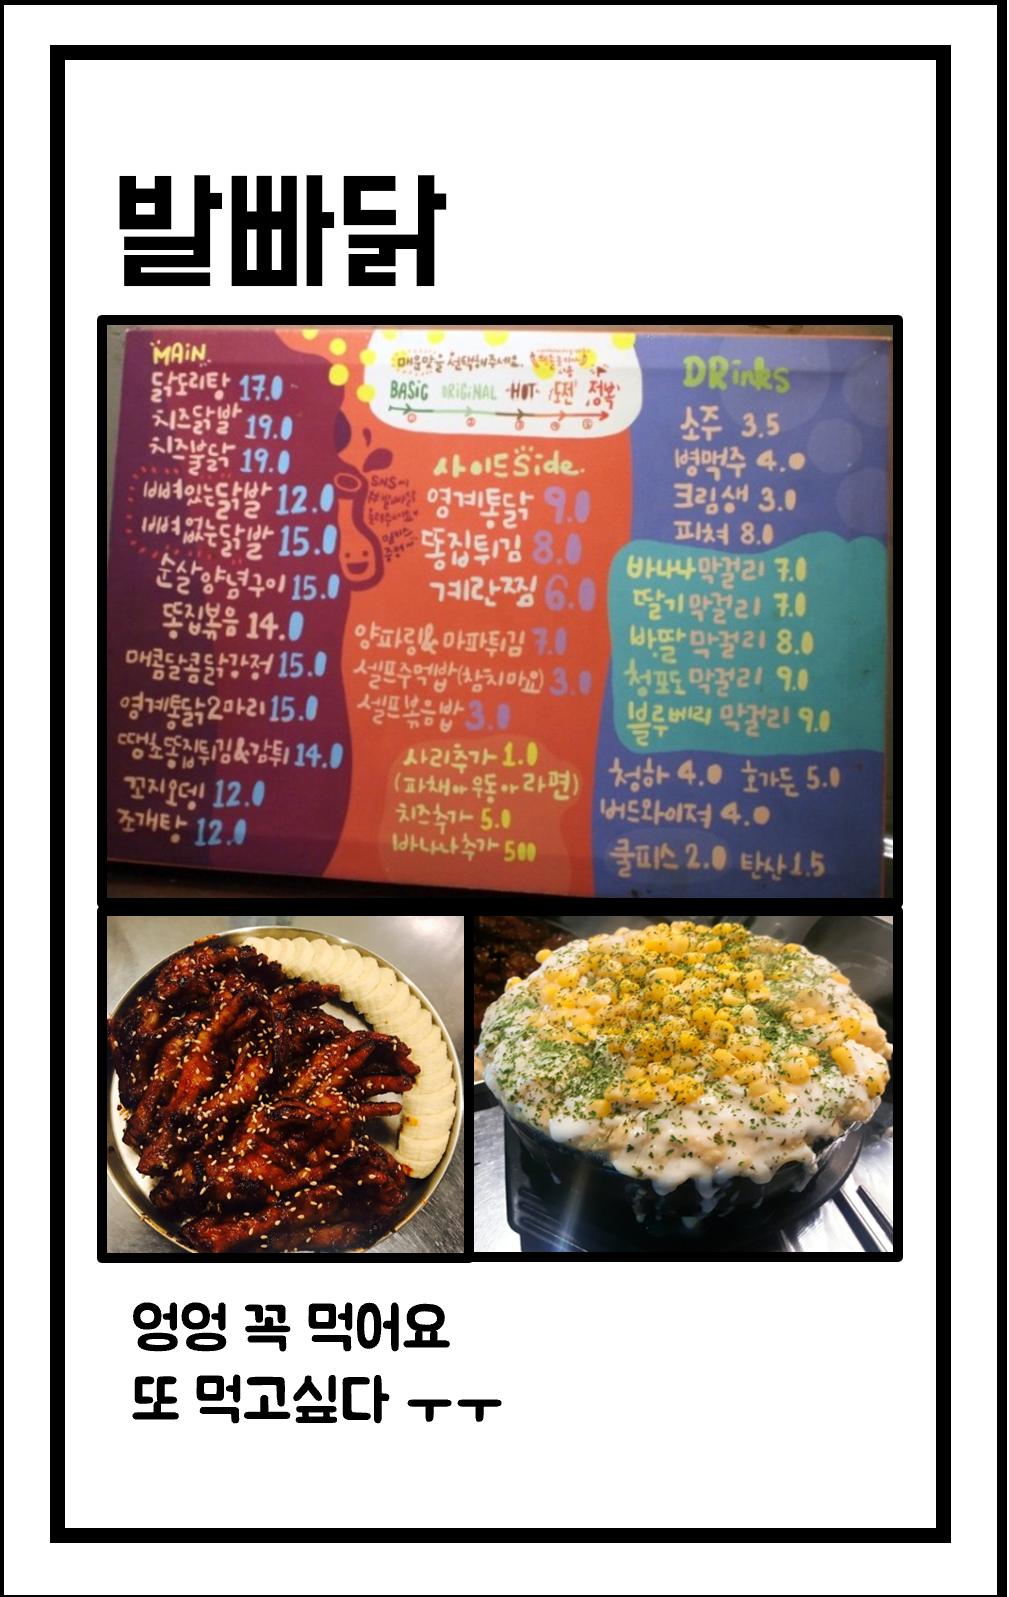 발빠닭
MAiN.
닭도리탕 17.0
치즈닭발 19.0
치즈불닭 19.0
뼈있는닭발 12.0
뼈없는닭발 15.0
순살양념구이 15.0
똥집볶음 14.0
매콤달콤닭강정 15.0
영계통닭2마리 15.0
땡초똥집튀김&감튀 14.0
꼬지오뎅 12.0
조개탕 12.0
매운맛을 선택해주세요.
BASiG ORiGiNAL HOT 도전 정복
① ② ③ ④ ⑤
SNS에
사이드Side.
영계통닭 9.0
똥집튀김 8.0
계란찜 6.0
양파링& 마파튀김 7.0
셀프주먹밥(참치마요) 3.0
셀프볶음밥 3.0
사리추가 1.0
(파채or우동or라면)
치즈추가 5.0
바나나추가 500
DRinks
소주 3.5
병맥주 4.0
크림생 3.0
피쳐 8.0
바나나막걸리 7.0
딸기막걸리 7.0
바딸막걸리 8.0
청포도막걸리 9.0
블루베리 막걸리 9.0
청하 4.0 호가든 5.0
버드와이져 4.0
쿨피스 2.0 탄산 1.5
엉엉 꼭 먹어요
또 먹고싶다 ㅜㅜ